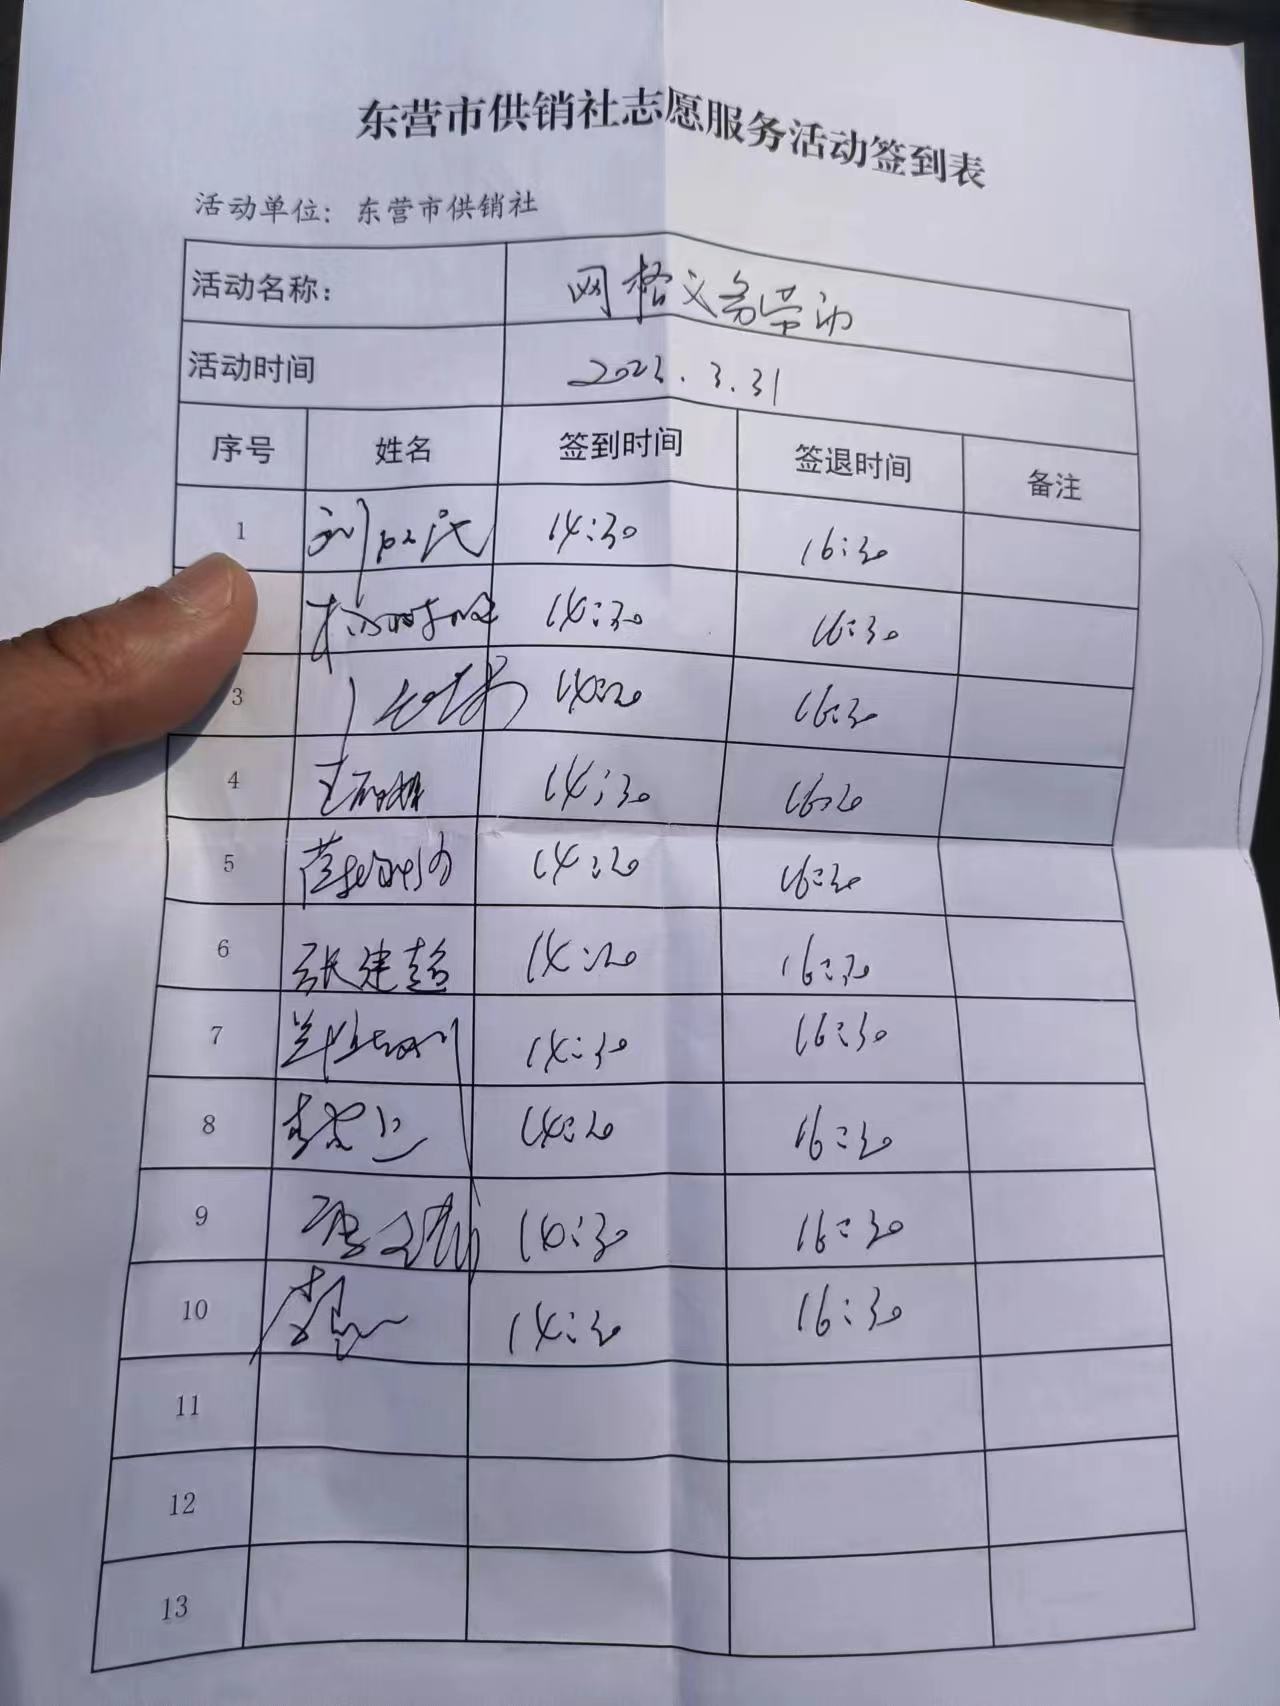 东营市供销社志愿服务活动签到表
活动单位：东营市供销社
活动名称： 网格义务劳动
活动时间 2023.3.31
序号 姓名 签到时间 签退时间 备注
1 14:30 16:30
14:30 16:30
3 14:30 16:30
4 14:30 16:30
5 14:30 16:30
6 张建超 14:30 16:30
7 14:30 16:30
8 14:30 16:30
9 14:30 16:30
10 14:30 16:30
11
12
13